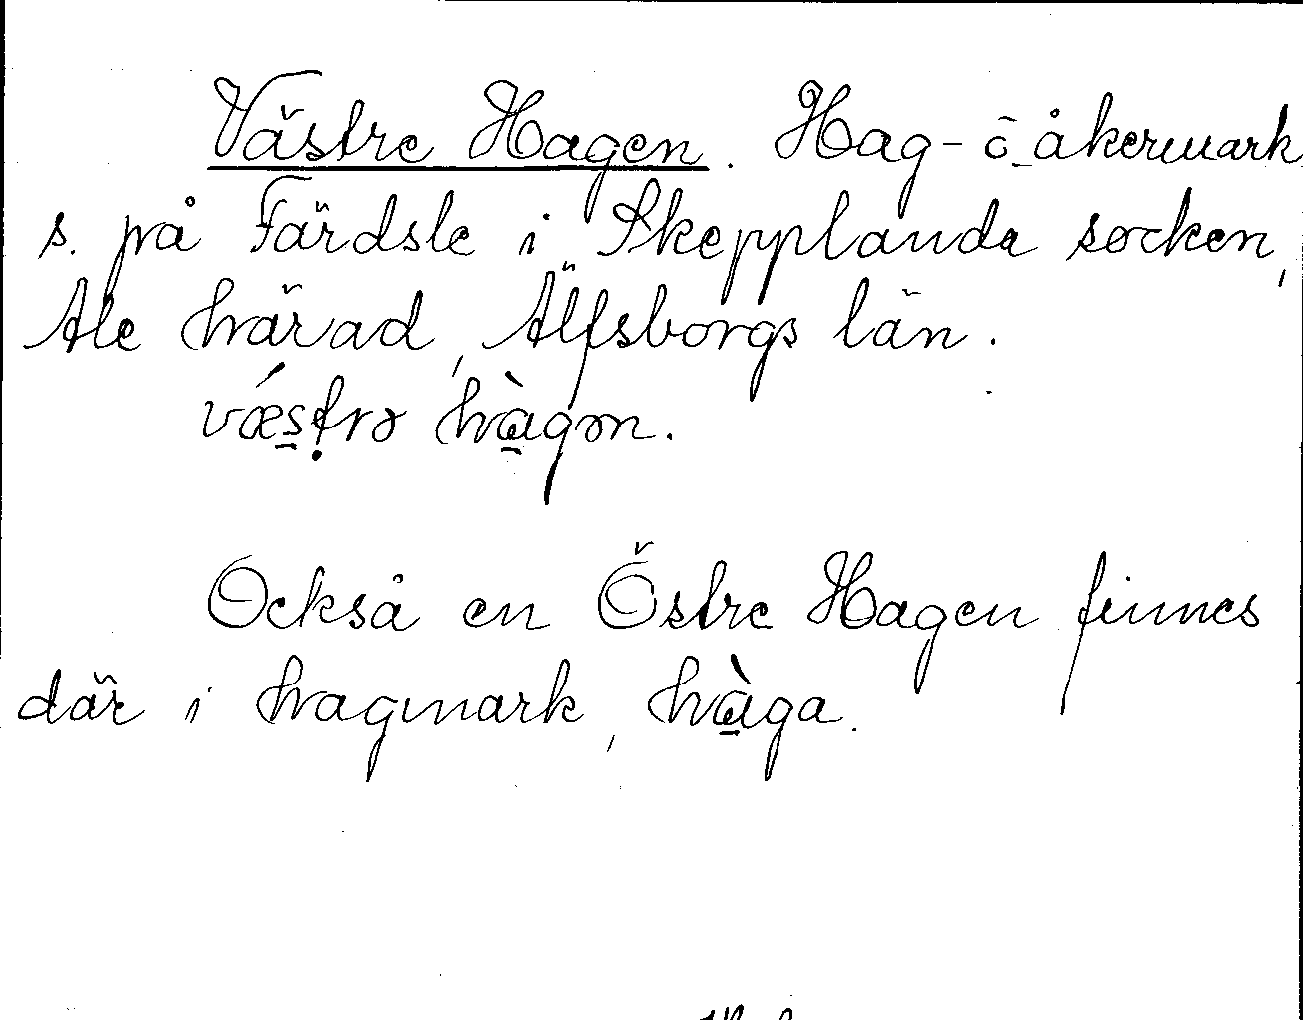 Västre Hagen. Hag- ō åkermark
s. på Färdsle i Skepplanda socken,
Ale härad, Älfsborgs län.
væ´s̱ṭrə hà̱gən.
Också en Östre Hagen finnes
där i hagmark, hà̱ga.